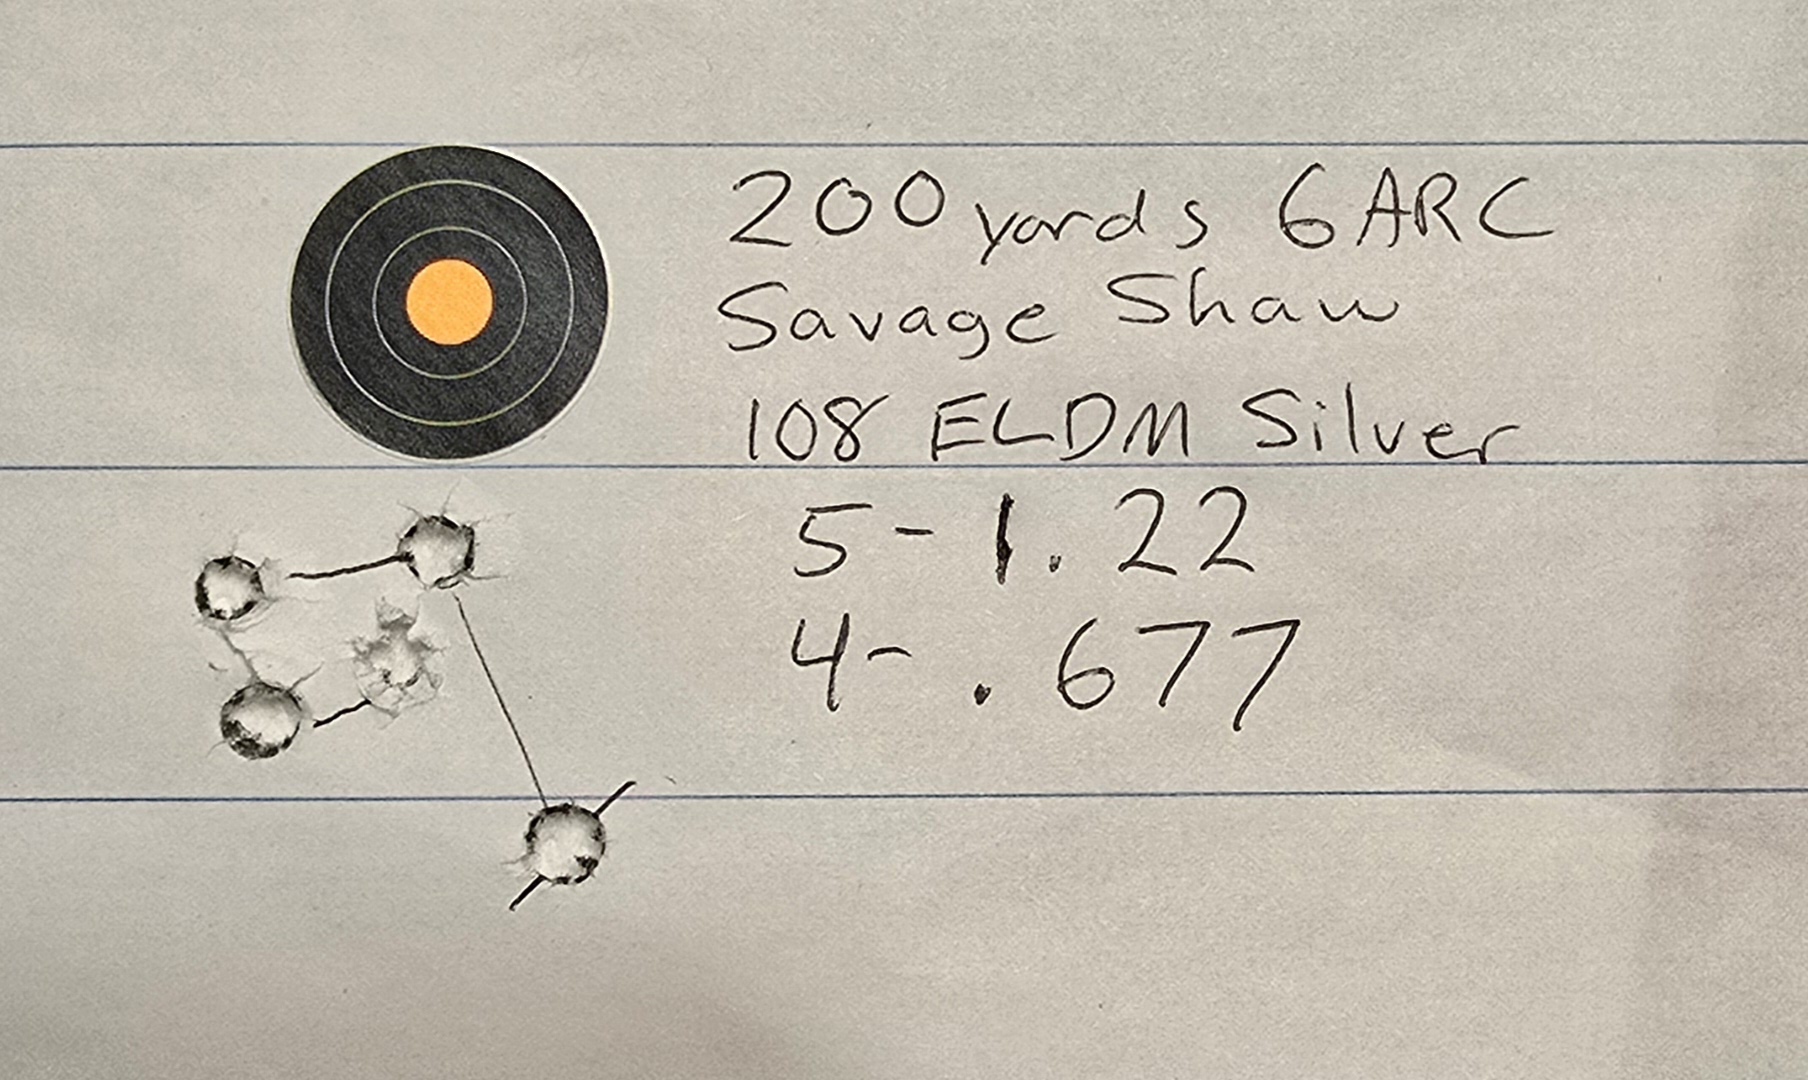 200 yards 6ARC
Savage Shaw
108 ELDM Silver
5-1.22
4-.677